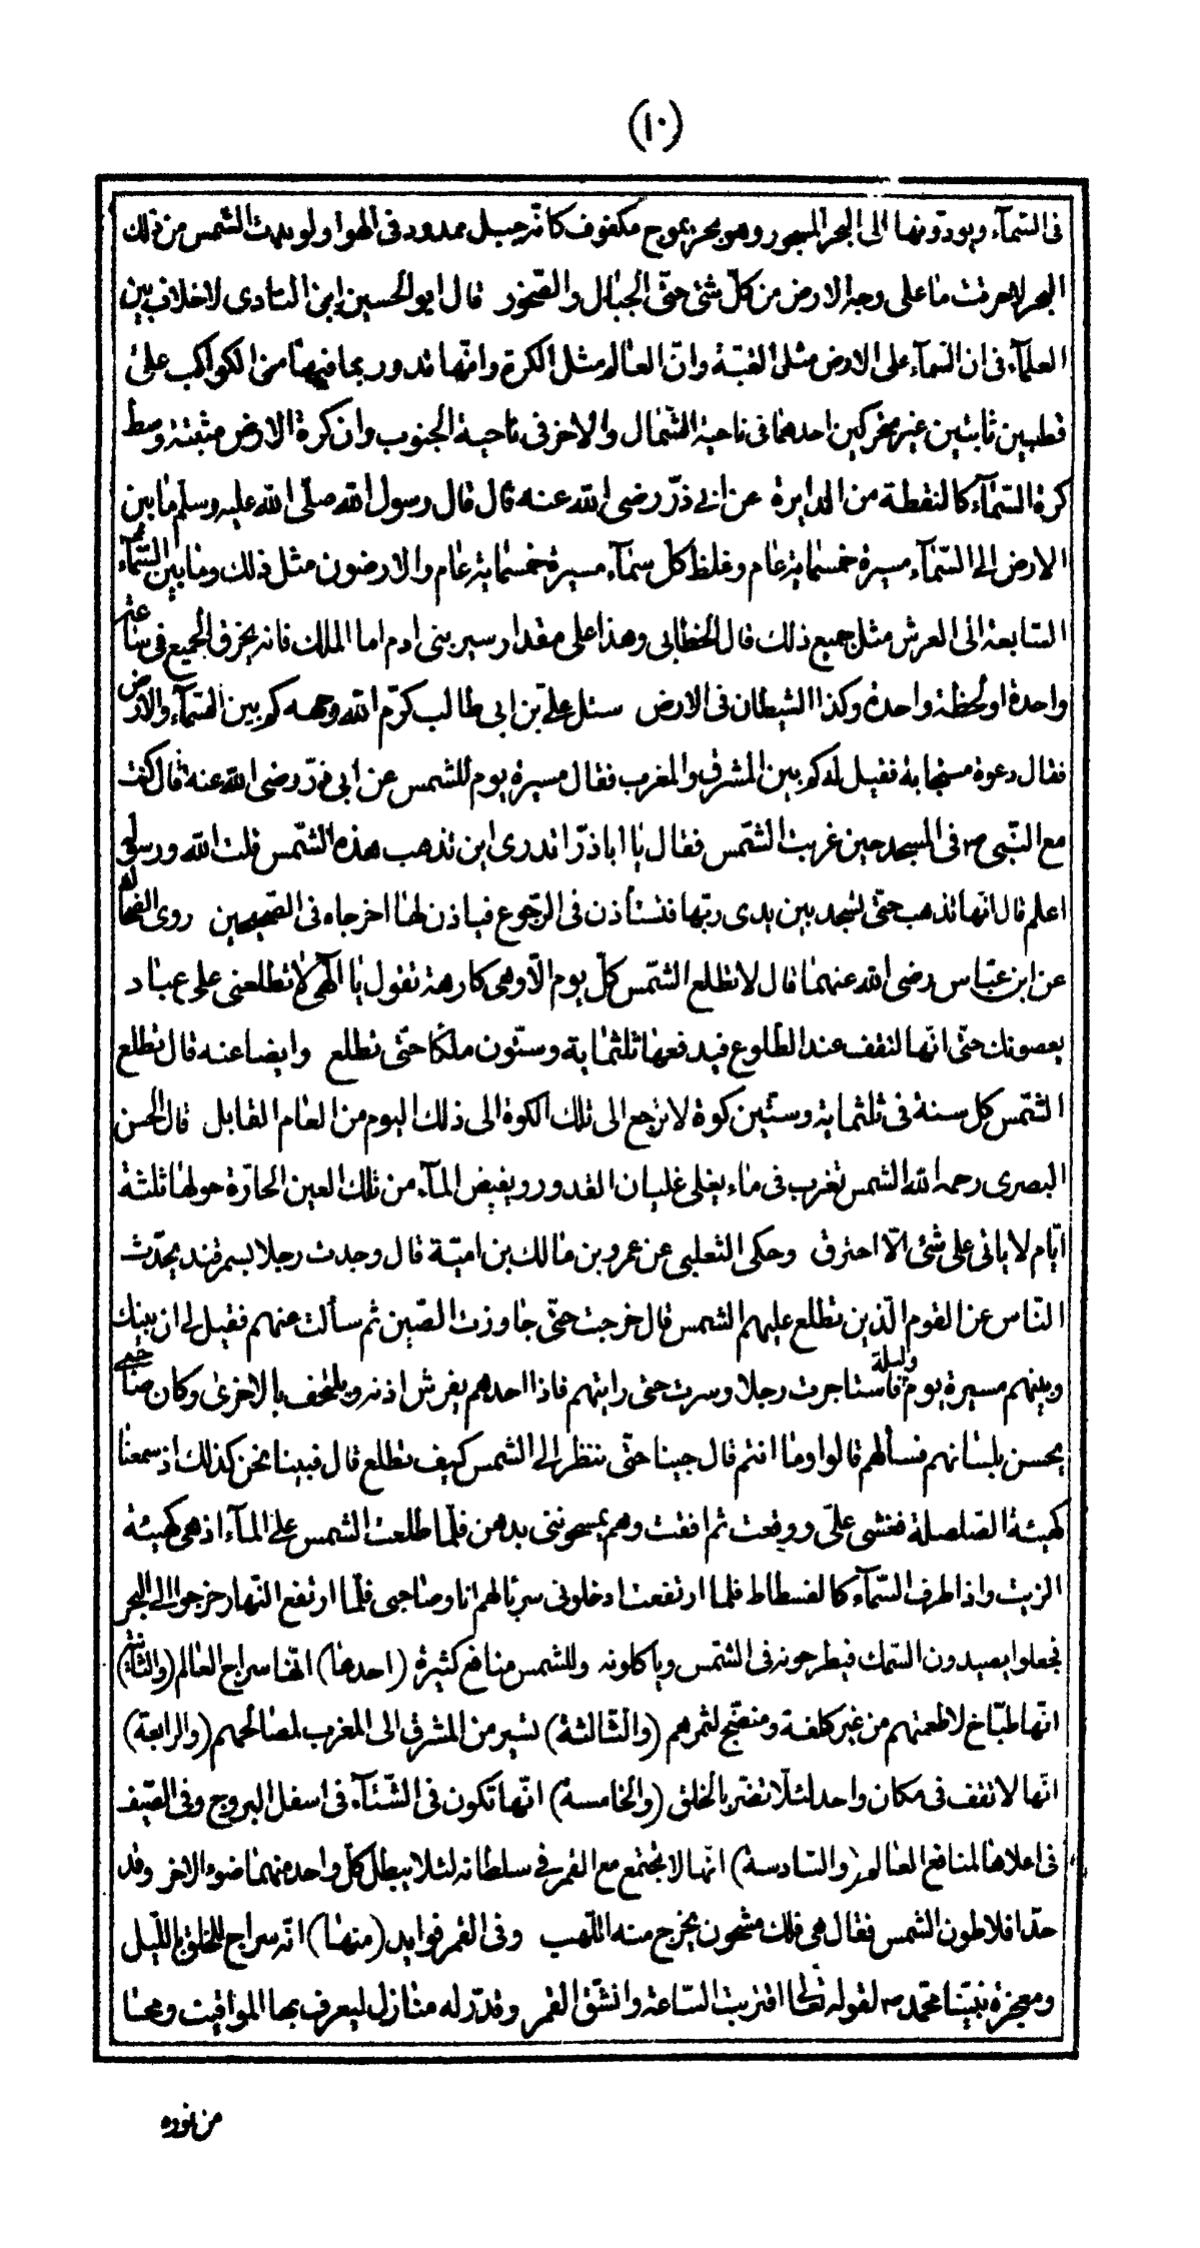 (١٠)
فى السّمآء ويودّونها الى البحر المسجور وهو بحر بموج مكفوف كانّه جبل ممدود فى الهوا ولو بدت الشمس من ذلك
البحر لاحرقت ما على وجه الارض من كلّ شئ حتّى الجبال والصّخور قال ابو الحسين ابن المنادى لاخلاف بين
العلمآء فى ان السّمآء على الارض مثل القبّة وانّ العالم مثل الكرة وانّها تدور بما فيها من الكواكب على
قطبين ثابتين غير متحركين احدهما فى ناحية الشّمال والاخر فى ناحية الجنوب وان كرة الارض مثبتة وسط
كرة السّمآء كالنقطة من الدايرة عن ابى ذرّ رضى الله عنه قال قال رسول الله صلّى الله عليه وسلّم ما بين
الارض الى السّمآء مسيرة خمسماية عام وغلظ كل سمآء مسيرة خمسماية عام والارضون مثل ذلك وما بين السّمآء
السّابعة الى العرش مثل جميع ذلك قال الخطابى وهذا على مقدار سير بنى ادم اما الملك فانه يخرق الجميع فى ساعة
واحدة او لحظة واحدة وكذا الشيطان فى الارض سئل علىّ بن ابى طالب كرّم الله وجهه كم بين السّمآء والارض
فقال دعوة مستجابة فقيل له كم بين المشرق والمغرب فقال مسيرة يوم للشمس عن ابى ذرّ رضى الله عنه قال كنت
مع النّبى ص فى المسجد حين غربت الشّمس فقال يا اباذرّ اتدرى اين تذهب هذه الشّمس قلت الله ورسوله
اعلم قال انّها تذهب حتّى تسجد بين يدى ربّها فتستأذن فى الرّجوع فياذن لها اخرجاه فى الصّحيحين روى الضحاك
عن ابن عبّاس رضى الله عنهما قال لا تطلع الشّمس كلّ يوم الاّ وهى كارهة تقول يا الهى لا تطلعنى على عباد
يعصونك حتّى انّها لتقف عند الطلوع فيدفعها ثلثماية وستّون ملكا حتّى تطلع وايضا عنه قال تطلع
الشّمس كل سنة فى ثلثماية وستّين كوة لا ترجع الى تلك الكوة الى ذلك اليوم من العام القابل قال الحسن
البصرى رحمه الله الشمس تغرب فى ماء يغلى غليان القدور ويفيض المآء من تلك العين الحارّة حولها ثلثة
ايّام لا ياتى على شئ الاّ احترق وحكى الثعلبى عن عمرو بن مالك بن اميّة قال وجدت رجلا بسمرقند يحدّث
النّاس عن القوم الّذين تطلع عليهم الشمس قال خرجت حتّى جاوزت الصّين ثم سألت عنهم فقيل لى ان بينك
وبينهم مسيرة يوم وليلة فاستاجرت رجلا وسرت حتى رايتهم فاذا احدهم يفرش اذنه ويلتحف بالاخرى وكان صاحبى
يحسن بلسانهم فسألهم قالوا وما انتم قال جينا حتّى ننظر الى الشمس كيف تطلع قال فبينا نحن كذلك اذ سمعنا
كهيئة الصّلصلة فغشى علىّ ووقعت ثم افقت وهم يمسحوننى بدهن فلّما طلعت الشمس على المآء اذ هى كهيئة
الزيت واذا طرف السّمآء كالفسطاط فلما ارتفعت ادخلونى سربا لهم انا وصاحبى فلّما ارتفع النّهار خرجوا الى البحر
فجعلوا يصيدون السّمك فيطرحونه فى الشّمس وياكلونه وللشمس منافع كثيرة (احدها) انّها سراج العالم (والثّانية)
انّها طبّاخ لاطعمتهم من غير كلفة ومنضج لثمرهم (والثّالثة) تسير من المشرق الى المغرب لمصالحهم (والرابعة)
انّها لا تقف فى مكان واحد لئلاّ تضرّ بالخلق (والخامسة) انّها تكون فى الشّتآء فى اسفل البروج وفى الصّيف
فى اعلاها لمنافع العالم (والسّادسة) انّها لا تجتمع مع القمر فى سلطانه لئلا يبطل كلّ واحد منهما ضوء الاخر وقد
حدّ افلاطون الشمس فقال هى فلك مشحون يخرج منه اللّهب وفى القمر فوايد (منها) انّه سراج للخلق باللّيل
ومعجزة نبيّنا محمّد ص لقوله تعالى اقتربت السّاعة وانشقّ القمر وقدّر له منازل ليعرف بها المواقيت ومحا
من نوره